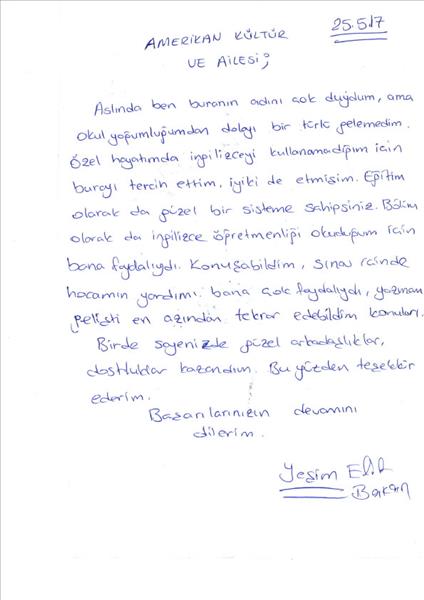 25.5.17
AMERİKAN KÜLTÜR
VE AİLESİ;
Aslında ben buranın adını çok duydum, ama
okul yoğumluğumdan dolayı bir türlü gelemedim.
Özel hayatımda ingilizceyi kullanamadığım için
burayı tercih ettim, iyiki de etmişim. Eğitim
olarak da güzel bir sisteme sahipsiniz. Bölüm
olarak da ingilizce öğretmenliği okuduğum için
bana faydalıydı. Konuşabildim, sınav içinde
hocamın yardımı bana çok faydalıydı, yazmam
gelişti en azından tekrar edebildim konuları.
Birde sayenizde güzel arkadaşlıklar,
dostluklar kazandım. Bu yüzden teşekkür
ederim.
Başarılarınızın devamını
dilerim.
Yeşim Elif